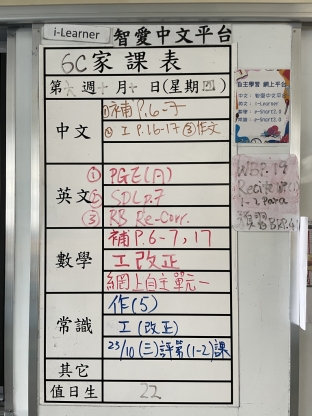 i-Learner 智愛中文平台
6C家課表
第六週十月十日(星期四)
中文
①補P.6-7
②工P.16-17 ③作文
英文
① PGE(月)
② SDLp.7
③ RB Re-Corr.
數學
補P.6-7,17
工改正
網上自主單元一
常識
作(5)
工(改正)
23/10(三)評第(1-2)課
其它
值日生
22
自主學習 網上平台
中文：智愛中文平台
英文：i-Learner
常識：eSmart2.0
WBP.19
Recite
1-2 Para